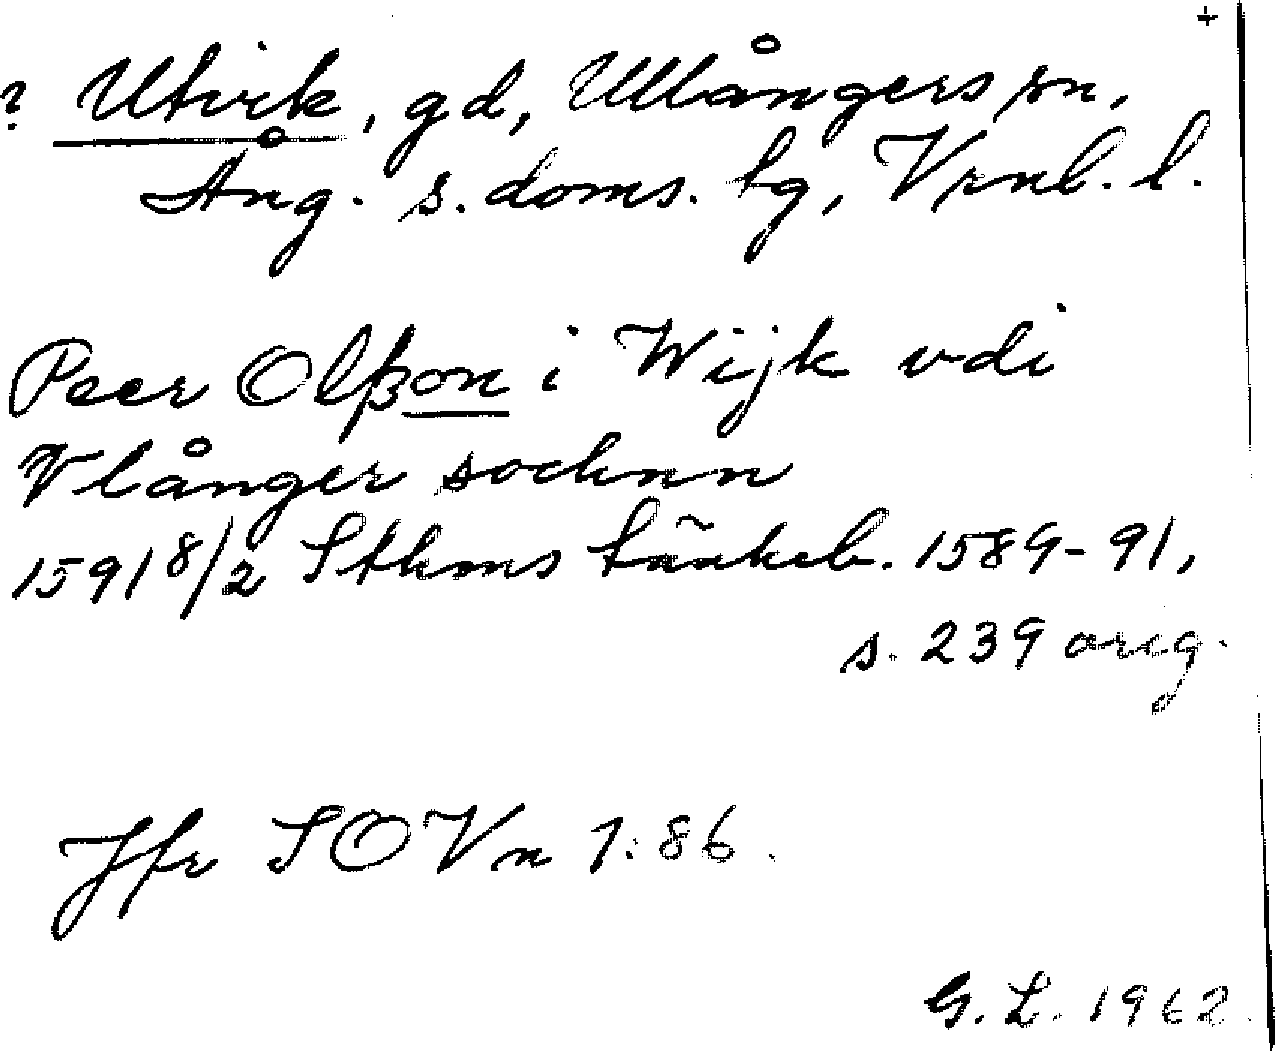 +
? Utvik, gd, Ullångers sn,
Ång. s. doms. tg, Vrnl. l.
Peer Olßon i Wijk vdi
Vlånger sochnn
1591 8/2 Sthms tänkeb. 1589-91,
s. 239 orig.
Jfr SOVn 1:86.
G. L. 1962.